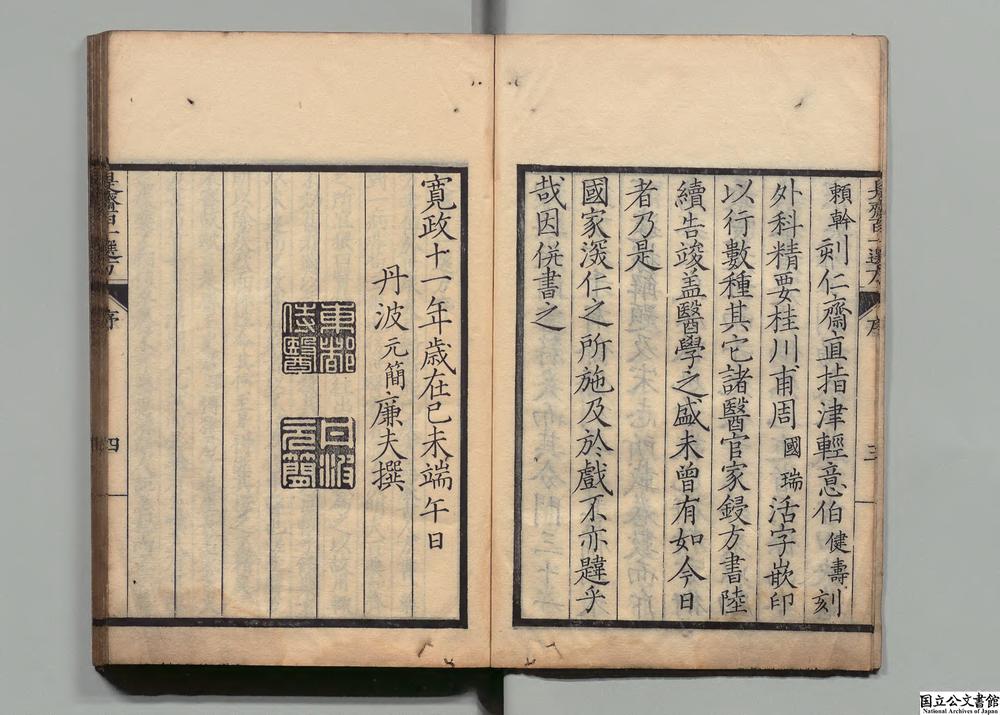 頼幹刻仁齋直指津輕意伯健壽刻
外科精要桂川甫周國瑞活字嵌印
以行數種其它諸醫官家鋟方書陸
續告竣盖醫學之盛未曾有如今日
者乃是
國家深仁之所施及於戲不亦韙乎
哉因併書之
寛政十一年歳在己未端午日
丹波元簡廉夫撰
東都
侍醫
丹波
元簡
是齋百一選方
序
三
是齋百一選方
序
四
国立公文書館
National Archives of Japan